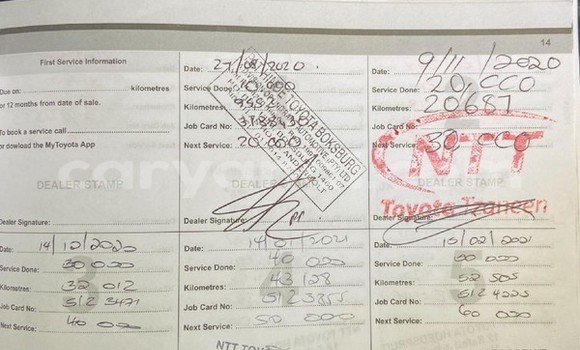 14
First Service Information
Due on: kilometres
or 12 months from date of sale.
To book a service call
or dowload the MyToyota App
DEALER STAMP
Dealer Signature:
Date: 27/08/2020
Service Done: 10 000
Kilometres:
Job Card No:
Next Service: 20 000
TOYOTA BOKSBURG
Dealer Signature:
Date: 9/11/2020
Service Done: 20,000
Kilometres: 20,687
Job Card No:
Next Service: 30 000
NTT
DEALER STAMP
Toyota Tzaneen
Dealer Signature:
Date: 14/12/2020
Service Done: 30 000
Kilometres: 32 012
Job Card No: 512 3471
Next Service: 40 000
Date: 14/01/2021
Service Done: 40 000
Kilometres: 43 128
Job Card No: 512 3855
Next Service: 50 000
NTT
Date: 15/02/2021
Service Done: 50 000
Kilometres: 52 505
Job Card No: 512 4225
Next Service: 60 000